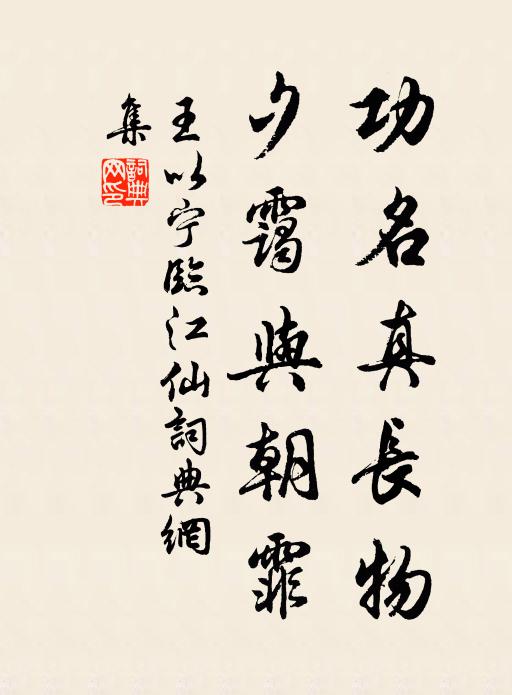 功名真長物
夕靄與朝霏
王以宁臨江仙詞典網
集
詞典網印